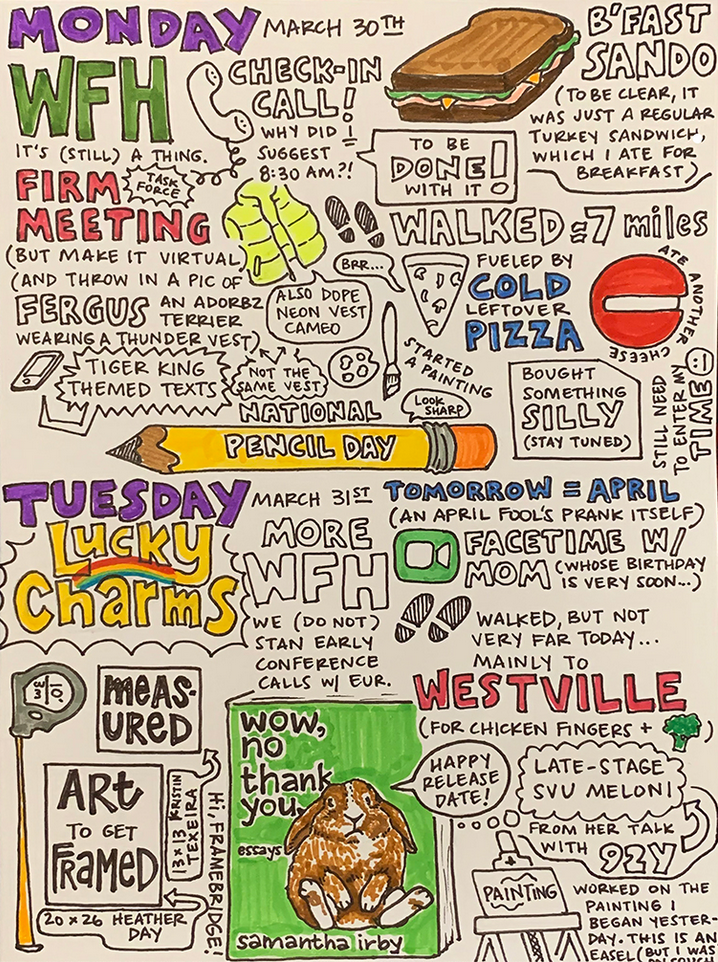 MONDAY MARCH 30TH
WFH
IT'S (STILL) A THING.
CHECK-IN
CALL!
WHY DID I
SUGGEST
8:30 AM?!
B'FAST
SANDO
(TO BE CLEAR, IT
WAS JUST A REGULAR
TURKEY SANDWICH,
WHICH I ATE FOR
BREAKFAST)
TO BE
DONE!
WITH IT
FIRM
TASK
FORCE
MEETING
(BUT MAKE IT VIRTUAL)
(AND THROW IN A PIC OF
FERGUS AN ADORBZ
TERRIER
WEARING A THUNDER VEST)
ALSO DOPE
NEON VEST
CAMEO
NOT THE
SAME VEST
WALKED ≈7 miles
BRR...
FUELED BY
COLD
LEFTOVER
PIZZA
ATE ANOTHER CHEESE
TIGER KING
THEMED TEXTS
STARTED
A PAINTING
BOUGHT
SOMETHING
SILLY
(STAY TUNED)
STILL NEED
TO ENTER MY
TIME
NATIONAL
LOOK
SHARP
PENCIL DAY
TUESDAY MARCH 31ST
Lucky
Charms
MORE
WFH
WE (DO NOT)
STAN EARLY
CONFERENCE
CALLS W/ EUR.
TOMORROW = APRIL
(AN APRIL FOOL'S PRANK ITSELF)
FACETIME W/
MOM (WHOSE BIRTHDAY
IS VERY SOON...)
WALKED, BUT NOT
VERY FAR TODAY...
MAINLY TO
WESTVILLE
(FOR CHICKEN FINGERS + )
meas-
ured
ARt
TO GET
FRAMED
13 x 13 KRISTIN
TEXEIRA
20 x 26 HEATHER
DAY
HI, FRAMEBRIDGE!
wow,
no
thank
you.
essays
samantha irby
HAPPY
RELEASE
DATE!
LATE-STAGE
SVU MELONI
FROM HER TALK
WITH 92Y
PAINTING
WORKED ON THE
PAINTING I
BEGAN YESTER-
DAY. THIS IS AN
EASEL (BUT I WAS